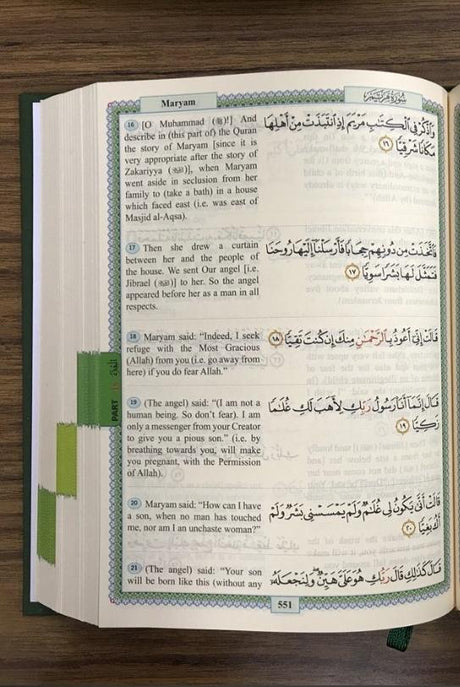 Maryam
سورة مريم
16 [O Muhammad (ﷺ)!] And
describe in (this part of) the Quran
the story of Maryam [since it is
very appropriate after the story of
Zakariyya (عليه السلام)], when Maryam
went aside in seclusion from her
family to (take a bath) in a house
which faced east (i.e. was east of
Masjid al-Aqsa).
وَٱذْكُرْ فِى ٱلْكِتَٰبِ مَرْيَمَ إِذِ ٱنتَبَذَتْ مِنْ أَهْلِهَا
مَكَانًا شَرْقِيًّا ١٦
17 Then she drew a curtain
between her and the people of
the house. We sent Our angel [i.e.
Jibrael (عليه السلام)] to her. So the angel
appeared before her as a man in all
respects.
فَٱتَّخَذَتْ مِن دُونِهِمْ حِجَابًا فَأَرْسَلْنَآ إِلَيْهَا رُوحَنَا
فَتَمَثَّلَ لَهَا بَشَرًا سَوِيًّا ١٧
18 Maryam said: “Indeed, I seek
refuge with the Most Gracious
(Allah) from you (i.e. go away from
here) if you do fear Allah.”
قَالَتْ إِنِّىٓ أَعُوذُ بِٱلرَّحْمَٰنِ مِنكَ إِن كُنتَ تَقِيًّا ١٨
19 (The angel) said: “(I am not a
human being. So don’t fear). I am
only a messenger from your Creator
to give you a pious son.” (i.e. by
breathing towards you, will make
you pregnant, with the Permission
of Allah).
قَالَ إِنَّمَآ أَنَا۠ رَسُولُ رَبِّكِ لِأَهَبَ لَكِ غُلَٰمًا
زَكِيًّا ١٩
20 Maryam said: “How can I have
a son, when no man has touched
me, nor am I an unchaste woman?”
قَالَتْ أَنَّىٰ يَكُونُ لِى غُلَٰمٌ وَلَمْ يَمْسَسْنِى بَشَرٌ وَلَمْ
أَكُ بَغِيًّا ٢٠
21 (The angel) said: “Your son
will be born like this (without any
قَالَ كَذَٰلِكِ قَالَ رَبُّكِ هُوَ عَلَىَّ هَيِّنٌ وَلِنَجْعَلَهُۥٓ
551
PART 16